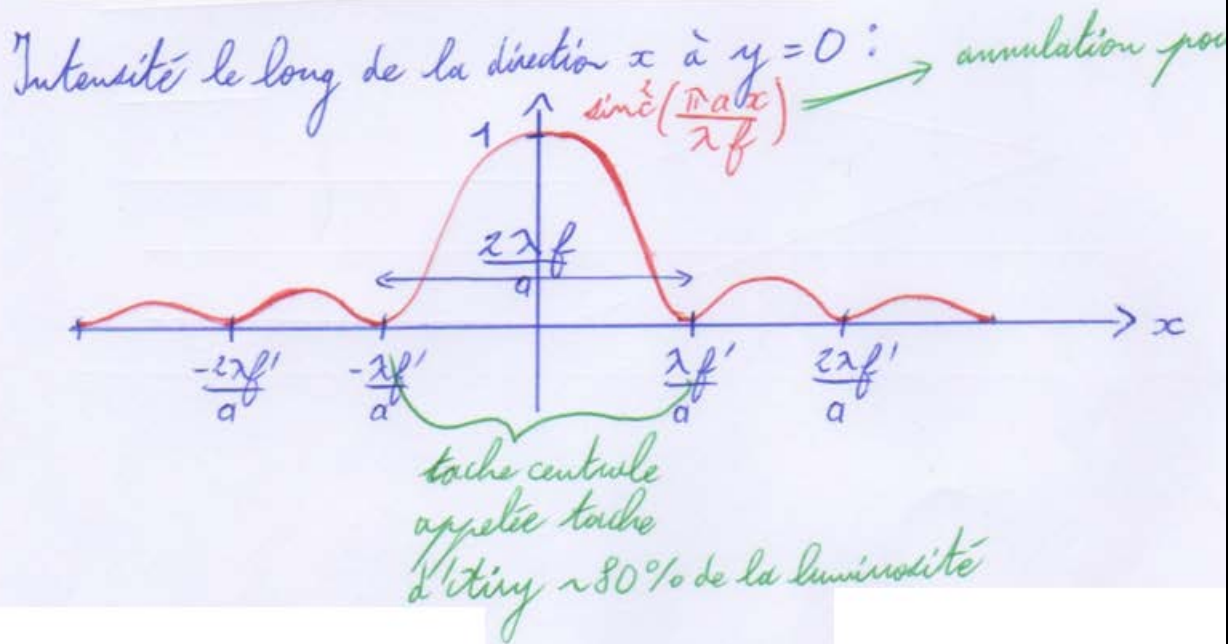 Intensité le long de la direction x à y = 0 :
annulation pou
sinc²(πax/λf)
1
2λf/a
x
-2λf'/a
-λf'/a
λf'/a
2λf'/a
tache centrale
appelée tache
d'Airy ~80% de la luminosité